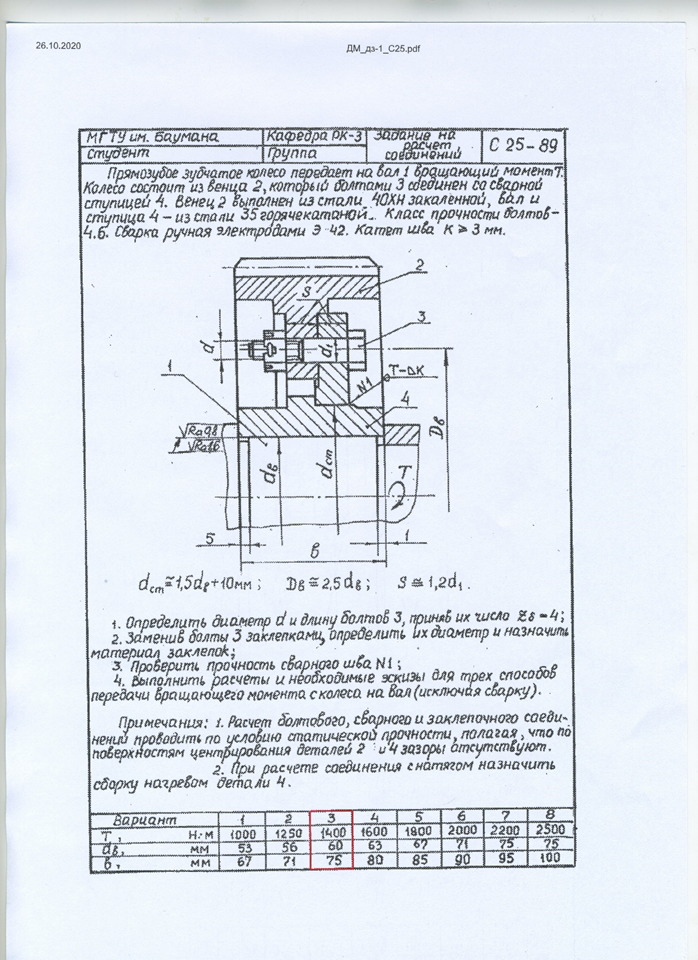 26.10.2020 ДМ_дз-1_С25.pdf
МГТУ им. Баумана Кафедра РК-3 Задание на расчет соединений С 25-89
Студент Группа
Прямозубое зубчатое колесо передает на вал 1 вращающий момент Т.
Колесо состоит из венца 2, который болтами 3 соединен со сварной
ступицей 4. Венец 2 выполнен из стали 40ХН закаленной, вал и
ступица 4 - из стали 35 горячекатаной. Класс прочности болтов -
4.6. Сварка ручная электродами Э-42. Катет шва К ⩾ 3 мм.
2
S
3
d
d₁
N1
Т-ΔК
1
4
Dв
√Ra0,8
√Ra1,6
dв
dст
T
5
в
1
dст ≅ 1,5dв+10мм; Dв ≅ 2,5dв; S ≅ 1,2d₁.
1. Определить диаметр d и длину болтов 3, приняв их число Zδ = 4;
2. Заменив болты 3 заклепками, определить их диаметр и назначить
материал заклепок;
3. Проверить прочность сварного шва N1;
4. Выполнить расчеты и необходимые эскизы для трех способов
передачи вращающего момента с колеса на вал (исключая сварку).
Примечания: 1. Расчет болтового, сварного и заклепочного соеди-
нений проводить по условию статической прочности, полагая, что по
поверхностям центрирования деталей 2 и 4 зазоры отсутствуют.
2. При расчете соединения с натягом назначить
сборку нагревом детали 4.
Вариант 1 2 3 4 5 6 7 8
Т, Н·м 1000 1250 1400 1600 1800 2000 2200 2500
dв, мм 53 56 60 63 67 71 75 75
в, мм 67 71 75 80 85 90 95 100